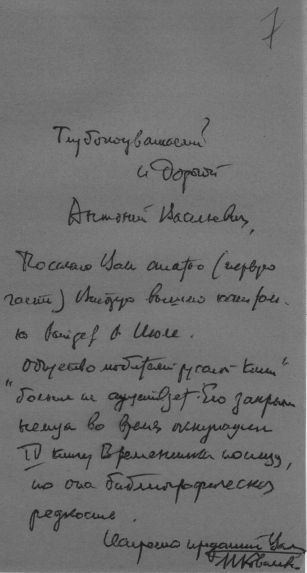 7
Глубокоуважаемый
и Дорогой
Антоний Васильевич,
Посылаю Вам статью (первую
часть)
выйдет в Июле.
"Общество любителей русской книги"
больше не существует. Его закрыли
немцы во время оккупации
IV книгу Временника поищу,
но она библиографическая
редкость.
Искренно преданный Вам